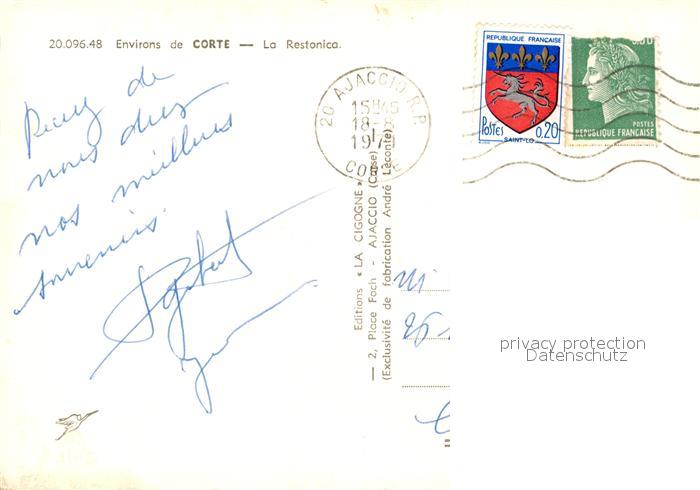 20.096.48 Environs de CORTE — La Restonica.
de
nous deux
nos meilleurs
souvenirs.
20 AJACCIO R.P.
15H45
18-
CORSE
REPUBLIQUE FRANÇAISE
Postes 0,20
SAINT-LO
POSTES
REPUBLIQUE FRANÇAISE
Editions « LA CIGOGNE »
— 2, Place Foch - AJACCIO (Corse) —
(Exclusivité de fabrication André Leconte)
privacy protection
Datenschutz